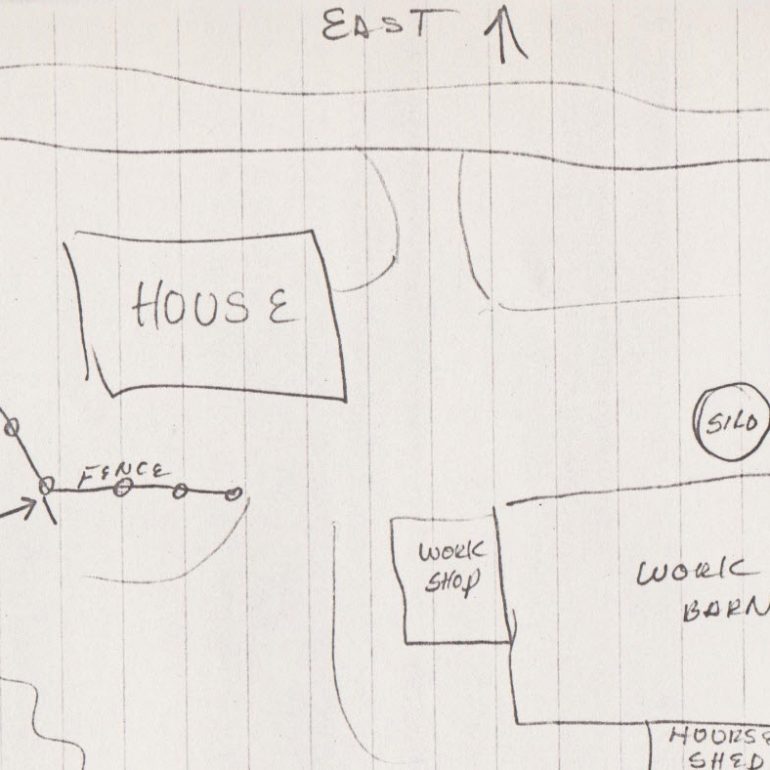 EAST
HOUSE
SILO
FENCE
WORK
SHOP
WORK
BARN
HOURSE
SHED